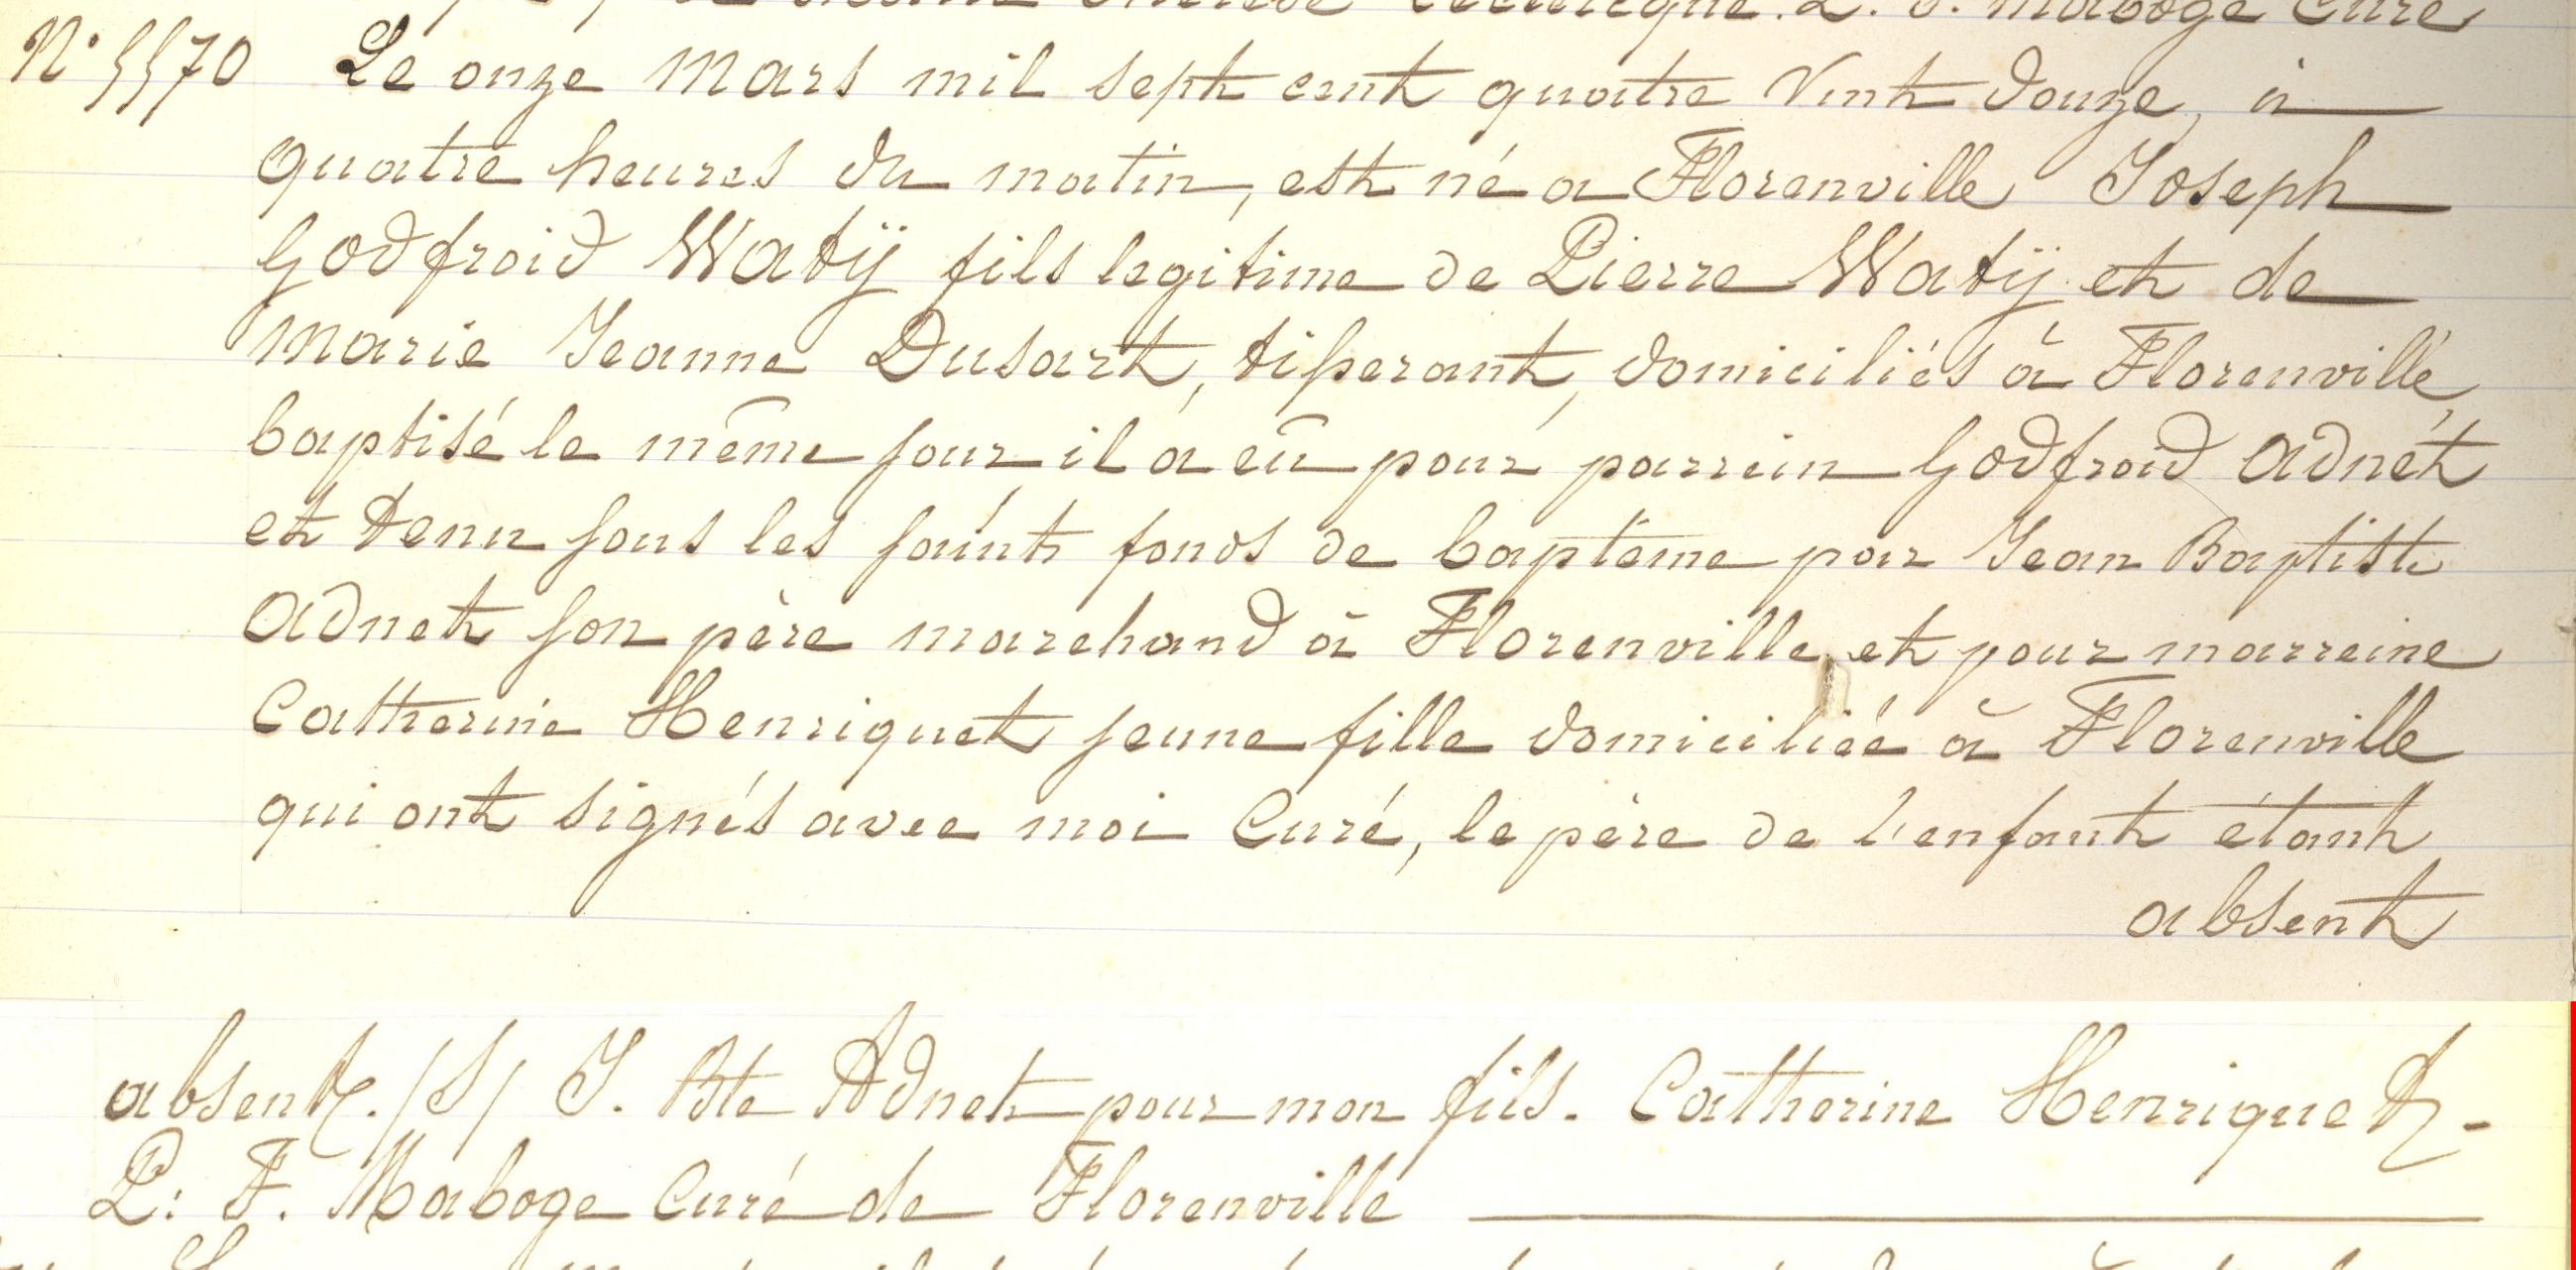 Curé
N° 5570 Le onze Mars mil sept cent quatre Vint douze, à
quatre heures du matin, est né a Florenville Joseph
Godfroid Watÿ fils legitime de Pierre Watÿ et de
Marie Jeanne Dusart, tisserant, domiciliés à Florenville,
baptisé le même jour il a eû pour parrein Godfroid Adnét
et tenu sous les saint fonds de baptême par Jean Baptiste
Adnet son père marchand à Florenville et pour marreine
Catherine Henriquet jeune fille domiciliée à Florenville
qui ont signés avec moi Curé, le père de l'enfant étant
absent
absent. /S/ J. Bte Adnet pour mon fils. Catherine Henriquet -
P: F. Maboge Curé de Florenville